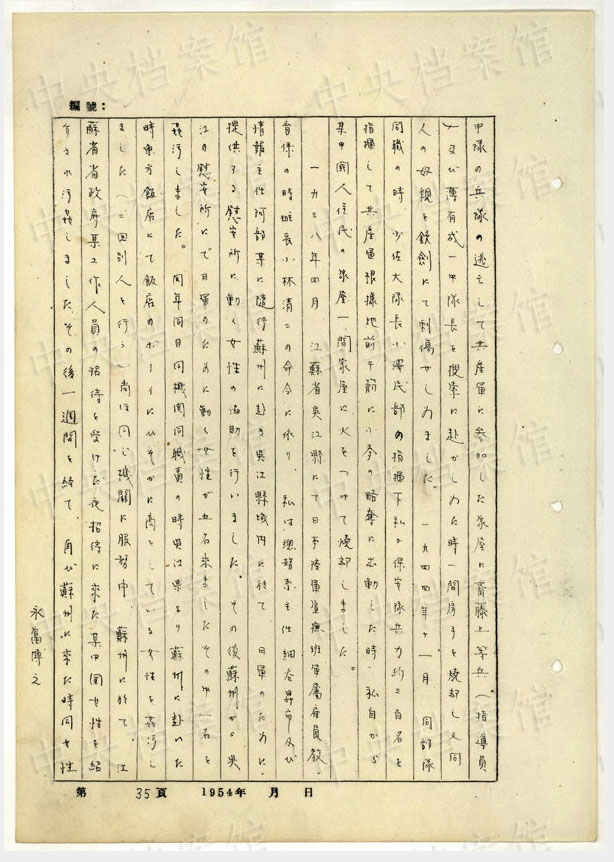 編號：
中隊の兵隊の逃亡して共産軍に参加した家屋に斎藤上等兵（指導員
）及び萬有成一中隊長を捜索に赴かしめた時一間房子を焼却し又同
人の母親を銃剣にて刺傷せしめました。一九四四年十一月 同部隊
同職の時 少佐大隊長小澤氏部の指揮下私が保安隊兵力約二百名を
指揮して共産軍根據地前 に小麥の略奪に出動した時、私自から
某中國人住民の家屋一間家屋に火をつけて焼却しました。
一九三八年四月 江蘇省吳江縣にて日本陸軍宣撫班軍属雇員教
育係の時班長小林清二の命令に依り 私は總務系主任細谷昇市及び
情報主任阿部某に隨行蘇州に赴き吳江縣城内に於て 日軍のために
提供する慰安所に動く女性の 助を行いました。その後蘇州から吳
江の慰安所にて日軍のために動く女性が五名来ましたその中一名を
姦污しました。同年同月同機関同職責の時吳江県より蘇州に赴いた
時東方飯店にて飯店のボーイにひそかに商をしている女性を姦污し
ました（二回別人を行う）尚ほ同じ機関に服務中、蘇州に於て、江
蘇省省政府某工作人員の招待を受けた夜招待に来た某中国女性を紹
介され污姦しました、その後一週間を経て、再び蘇州に来た時同女性
永富博之
第 35頁 1954年 月 日
中央档案馆